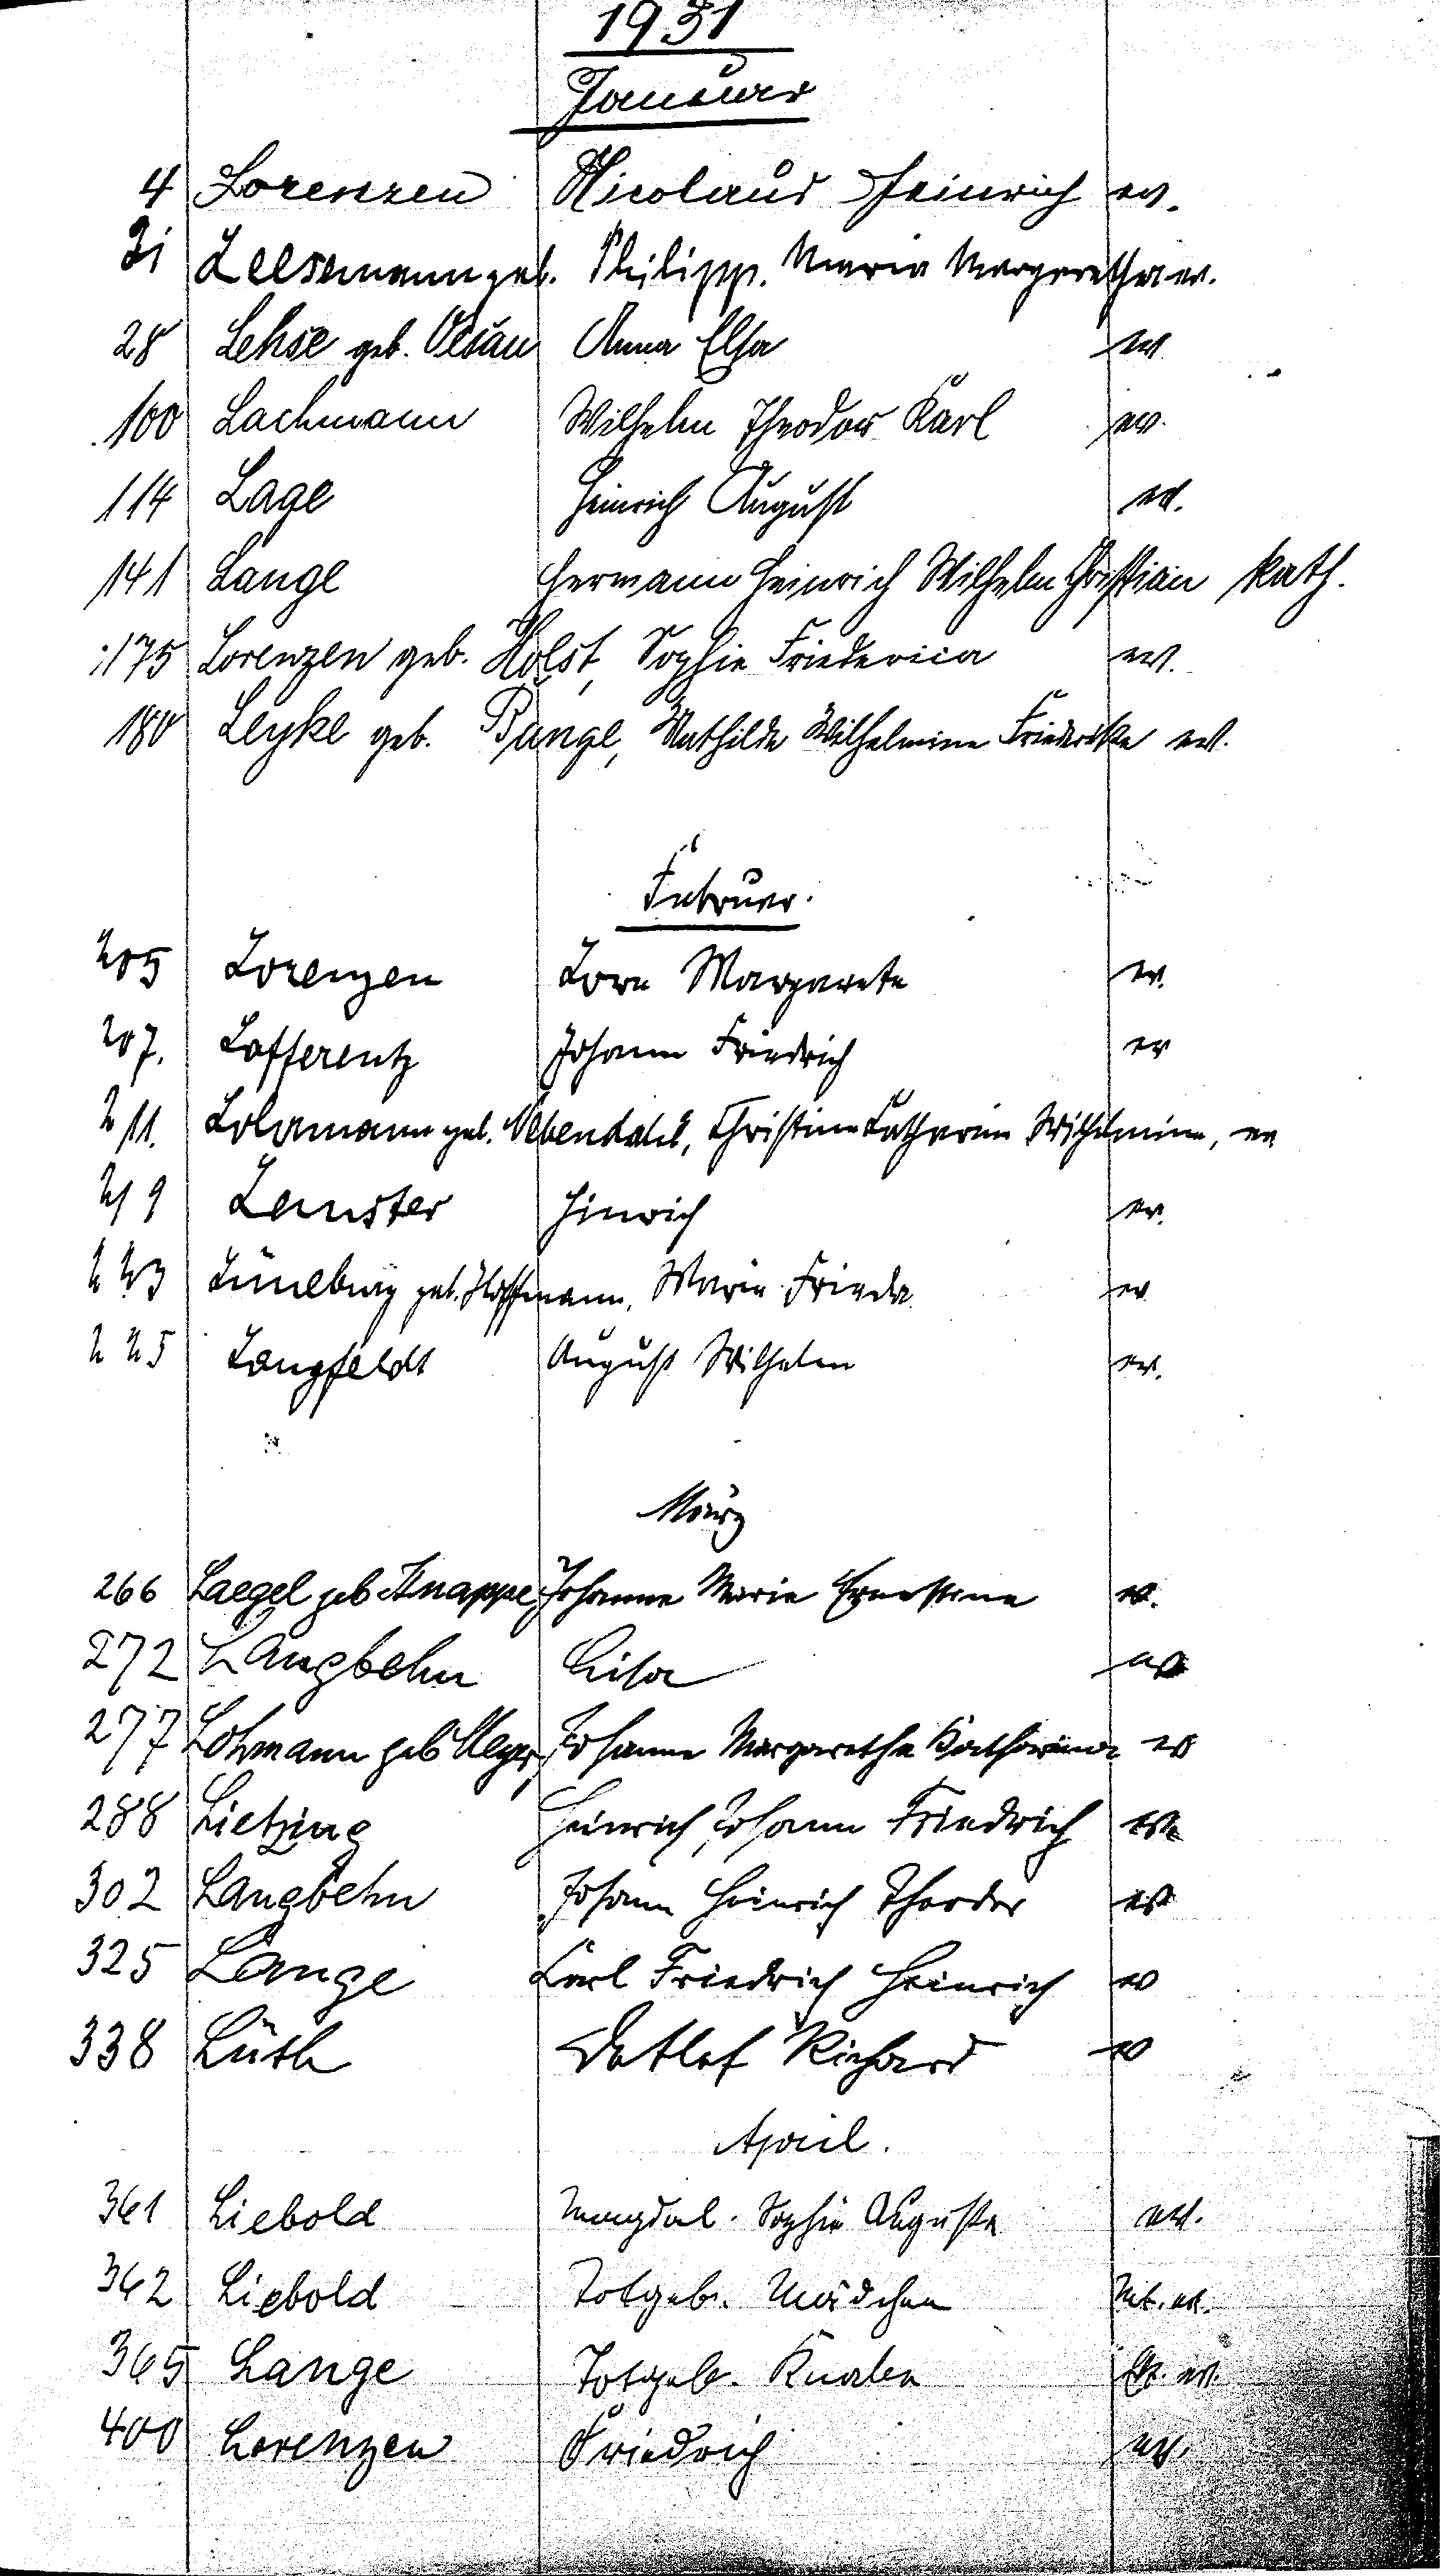 1931
Januar
4 Lorenzen Nicolaus Heinrich ev.
21 Leesemann geb. Philipp. Maria Margaretha ev.
28 Lehse geb. Oesau Anna Elsa ev
100 Lachmann Wilhelm Theodor Karl ev.
114 Lage Heinrich August ev.
141 Lange Hermann Heinrich Wilhelm Christian kath.
175 Lorenzen geb. Holst, Sophie Friederica ev.
180 Leyke geb. Bunge, Mathilde Wilhelmine Friederike ev.
Februar.
205 Lorenzen Lore Margarete ev.
207. Lafferentz Johann Friedrich ev
211. geb. Nebendahl, Christine Catharine Wilhelmine, ev
219 Lanster Hinrich ev.
223 Lüneburg geb. Hoffmann, Marie Frieda ev
225 Langfeldt August Wilhelm ev.
März
266 Laegel geb Knappe, Johanne Marie Ernestine ev.
272 Langbehn Lisa ev
277 Lohmann geb Meyer, Johanne Margaretha Katharina ev
288 Lietzing Heinrich Johann Friedrich ev.
302 Langbehn Johann Heinrich Theodor ev
325 Lange Carl Friedrich Heinrich ev
338 Lüth Detlef Richard ev
April.
361 Liebold Magdal. Sophie Auguste ev.
362 Liebold Totgeb. Mädchen ev.
365 Lange Totgeb. Knabe ev.
400 Lorenzen Friedrich ev.